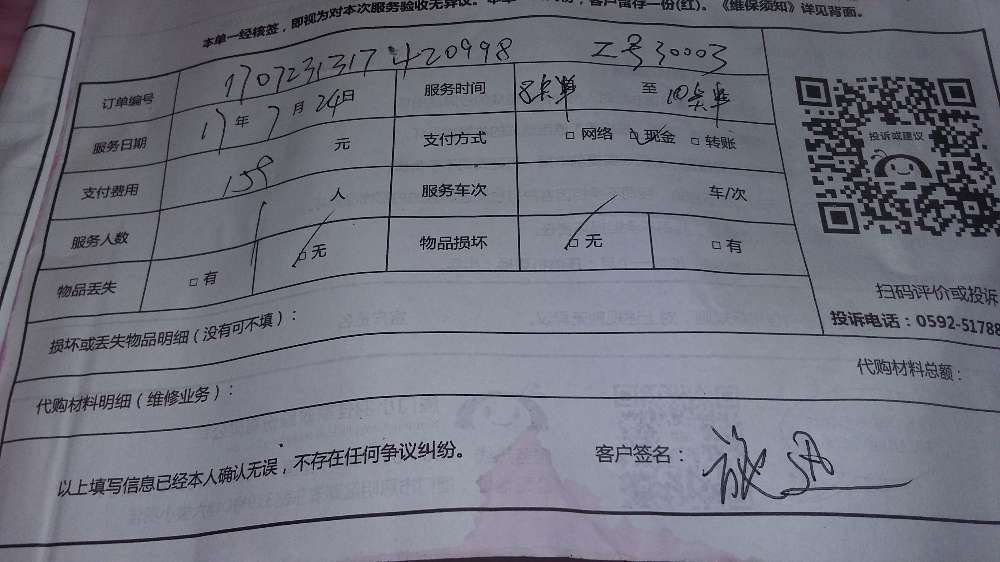 本单一经核签，即视为对本次服务验收无异议。 客户留存一份(红)。《维保须知》详见背面。
订单编号 1707231317420998 工号30003
服务日期 17年7月24日 服务时间 8点单 至 10点单
支付费用 159 元 支付方式 □网络 ☑现金 □转账
服务人数 1 人 服务车次 车/次
物品丢失 □有 ☑无 物品损坏 ☑无 □有
投诉或建议
扫码评价或投诉
投诉电话：0592-51788
损坏或丢失物品明细（没有可不填）：
代购材料明细（维修业务）： 代购材料总额：
以上填写信息已经本人确认无误，不存在任何争议纠纷。 客户签名：